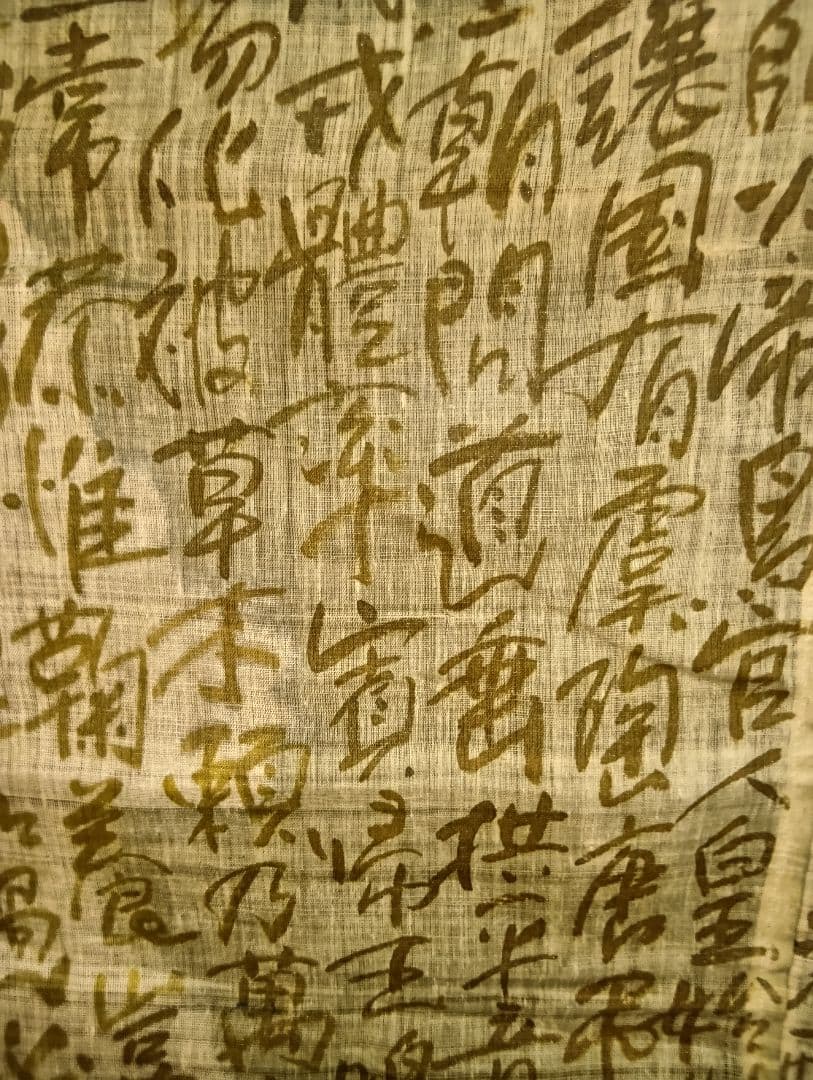 師火帝鳥官人皇始
讓国有虞陶唐弔
朝問道垂拱平
戎體率賓歸王鳴
場化被草木賴乃萬
常恭惟鞠養豈